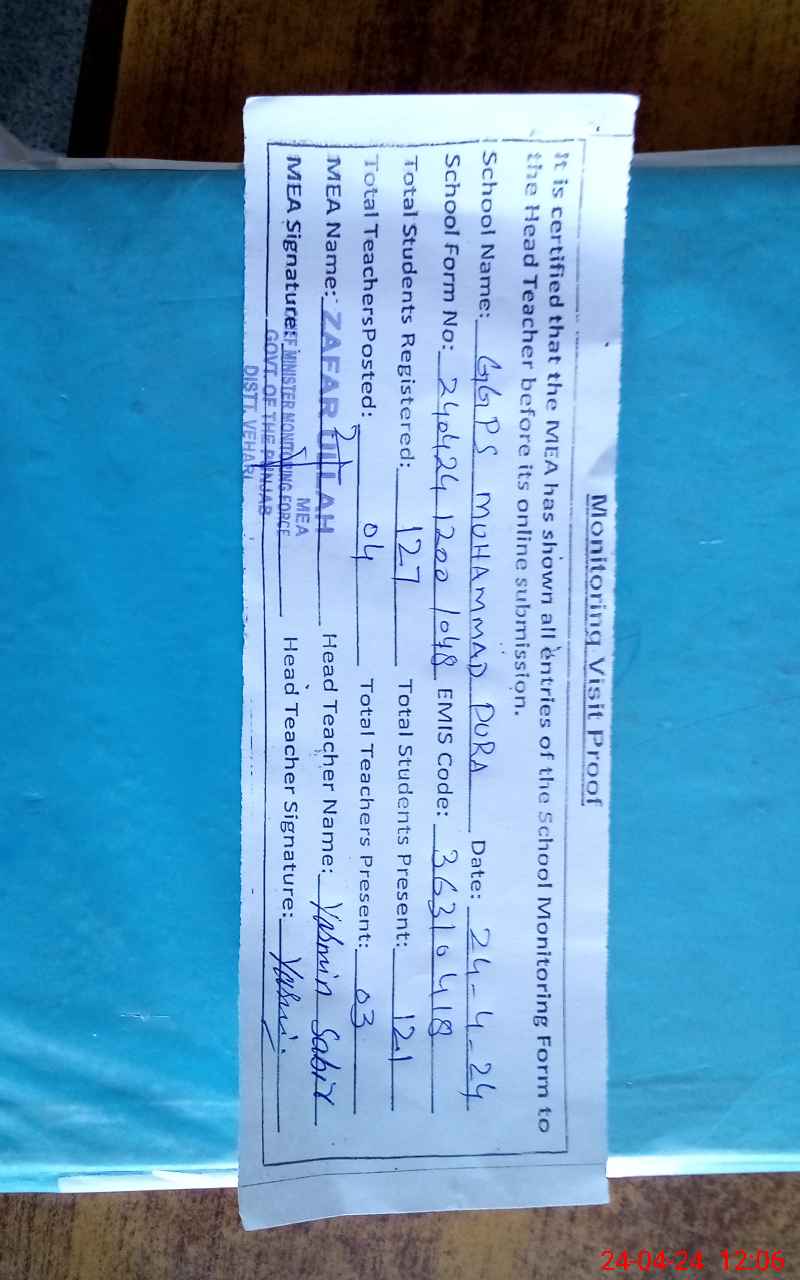 Monitoring Visit Proof
It is certified that the MEA has shown all entries of the School Monitoring Form to
the Head Teacher before its online submission.
School Name: GGPS MUHAMMAD PURA Date: 24-4-24
School Form No: 240424 1200 1048 EMIS Code: 36310418
Total Students Registered: 127 Total Students Present: 121
Total TeachersPosted: 04 Total Teachers Present: 03
MEA Name: ZAFAR ULLAH Head Teacher Name: Yasmin Sabir
MEA Signature: Head Teacher Signature: Yasmin
MEA
CHIEF MINISTER MONITORING FORCE
GOVT OF THE PUNJAB
DISTT. VEHARI
24-04-24 12:06